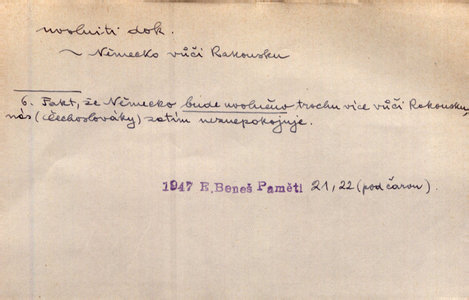 uvolniti dok.
~ Německo vůči Rakousku
6. Fakt, že Německo bude uvolněno trochu více vůči Rakousku,
nás (Čechoslováky) zatím neznepokojuje.
1947 E.Beneš Paměti 21,22 (pod čarou).